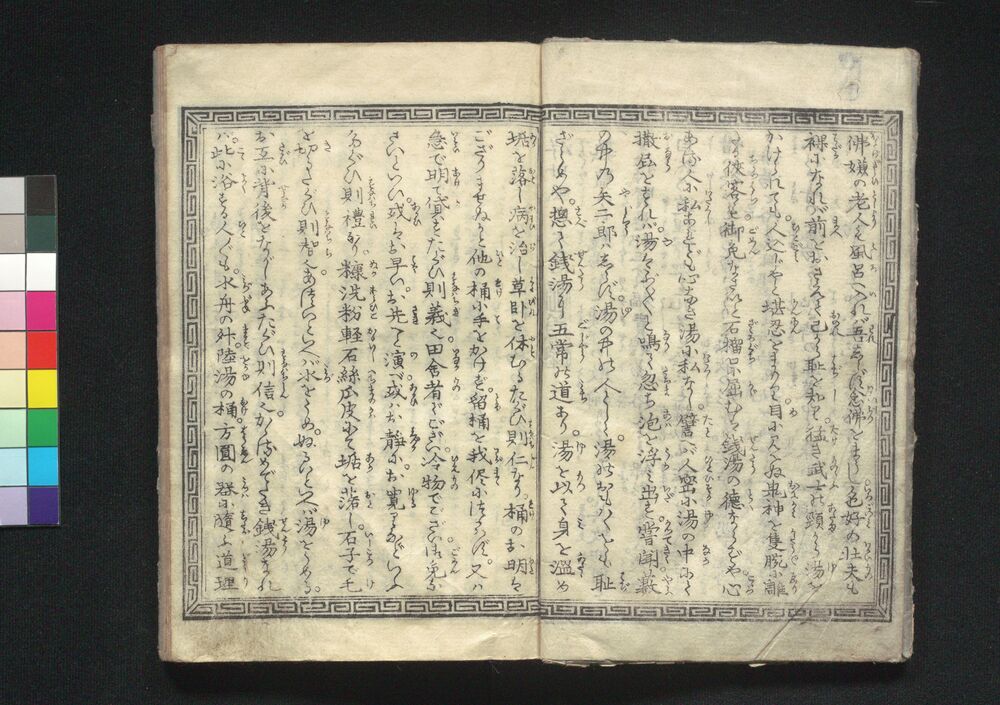 佛嫌の老人も風呂へ入れば吾しらず念佛をまうし色好の壮夫も
裸になれば前をおさへて己から恥を知り猛き武士の頸から湯を
かけられても人込じやと堪忍をまもり目に見えぬ鬼神を隻腕に雕
たる侠客も御免なさいと石榴口に屈むは銭湯の徳ならずや心
ある人に私あれども心なき湯に私なし譬ば人密に湯の中にて
撒屁をすれば湯はぶくぶくと鳴て忽ち泡を浮み出す嘗聞藪
の中の矢二郎はしらず湯の中の人として湯のおもはくをも恥
ざらめや惣て銭湯に五常の道あり湯を以て身を温め
垢を落し病を治し草臥を休むるたぐひ則仁なり桶のお明は
ござりませぬかと他の桶に手をかけず留桶を我儘につかはず又は
急で明て貸すたぐひ則義也田舎者でござい冷物でござい御免な
さいといひ或はお早いお先へと演べ或はお静にお寛りなどいふ
たぐひ則禮なり糠洗粉軽石絲瓜皮にて垢を落し石子で毛
を切るたぐひ則智也あついといへば水をうめぬるいといへば湯をうめる
お互に背後をながしあふたぐひ則信也かゝるめでたき銭湯なれ
ば此に浴する人々も水舟の升陸湯の桶方圓の器に随ふ道理